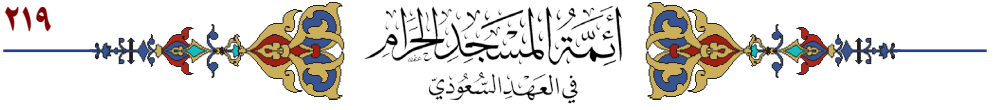 ٢١٩
أَئِمَّةُ المَسْجِدِ الحَرَامِ
فِي العَهْدِ السُّعُودِيِّ